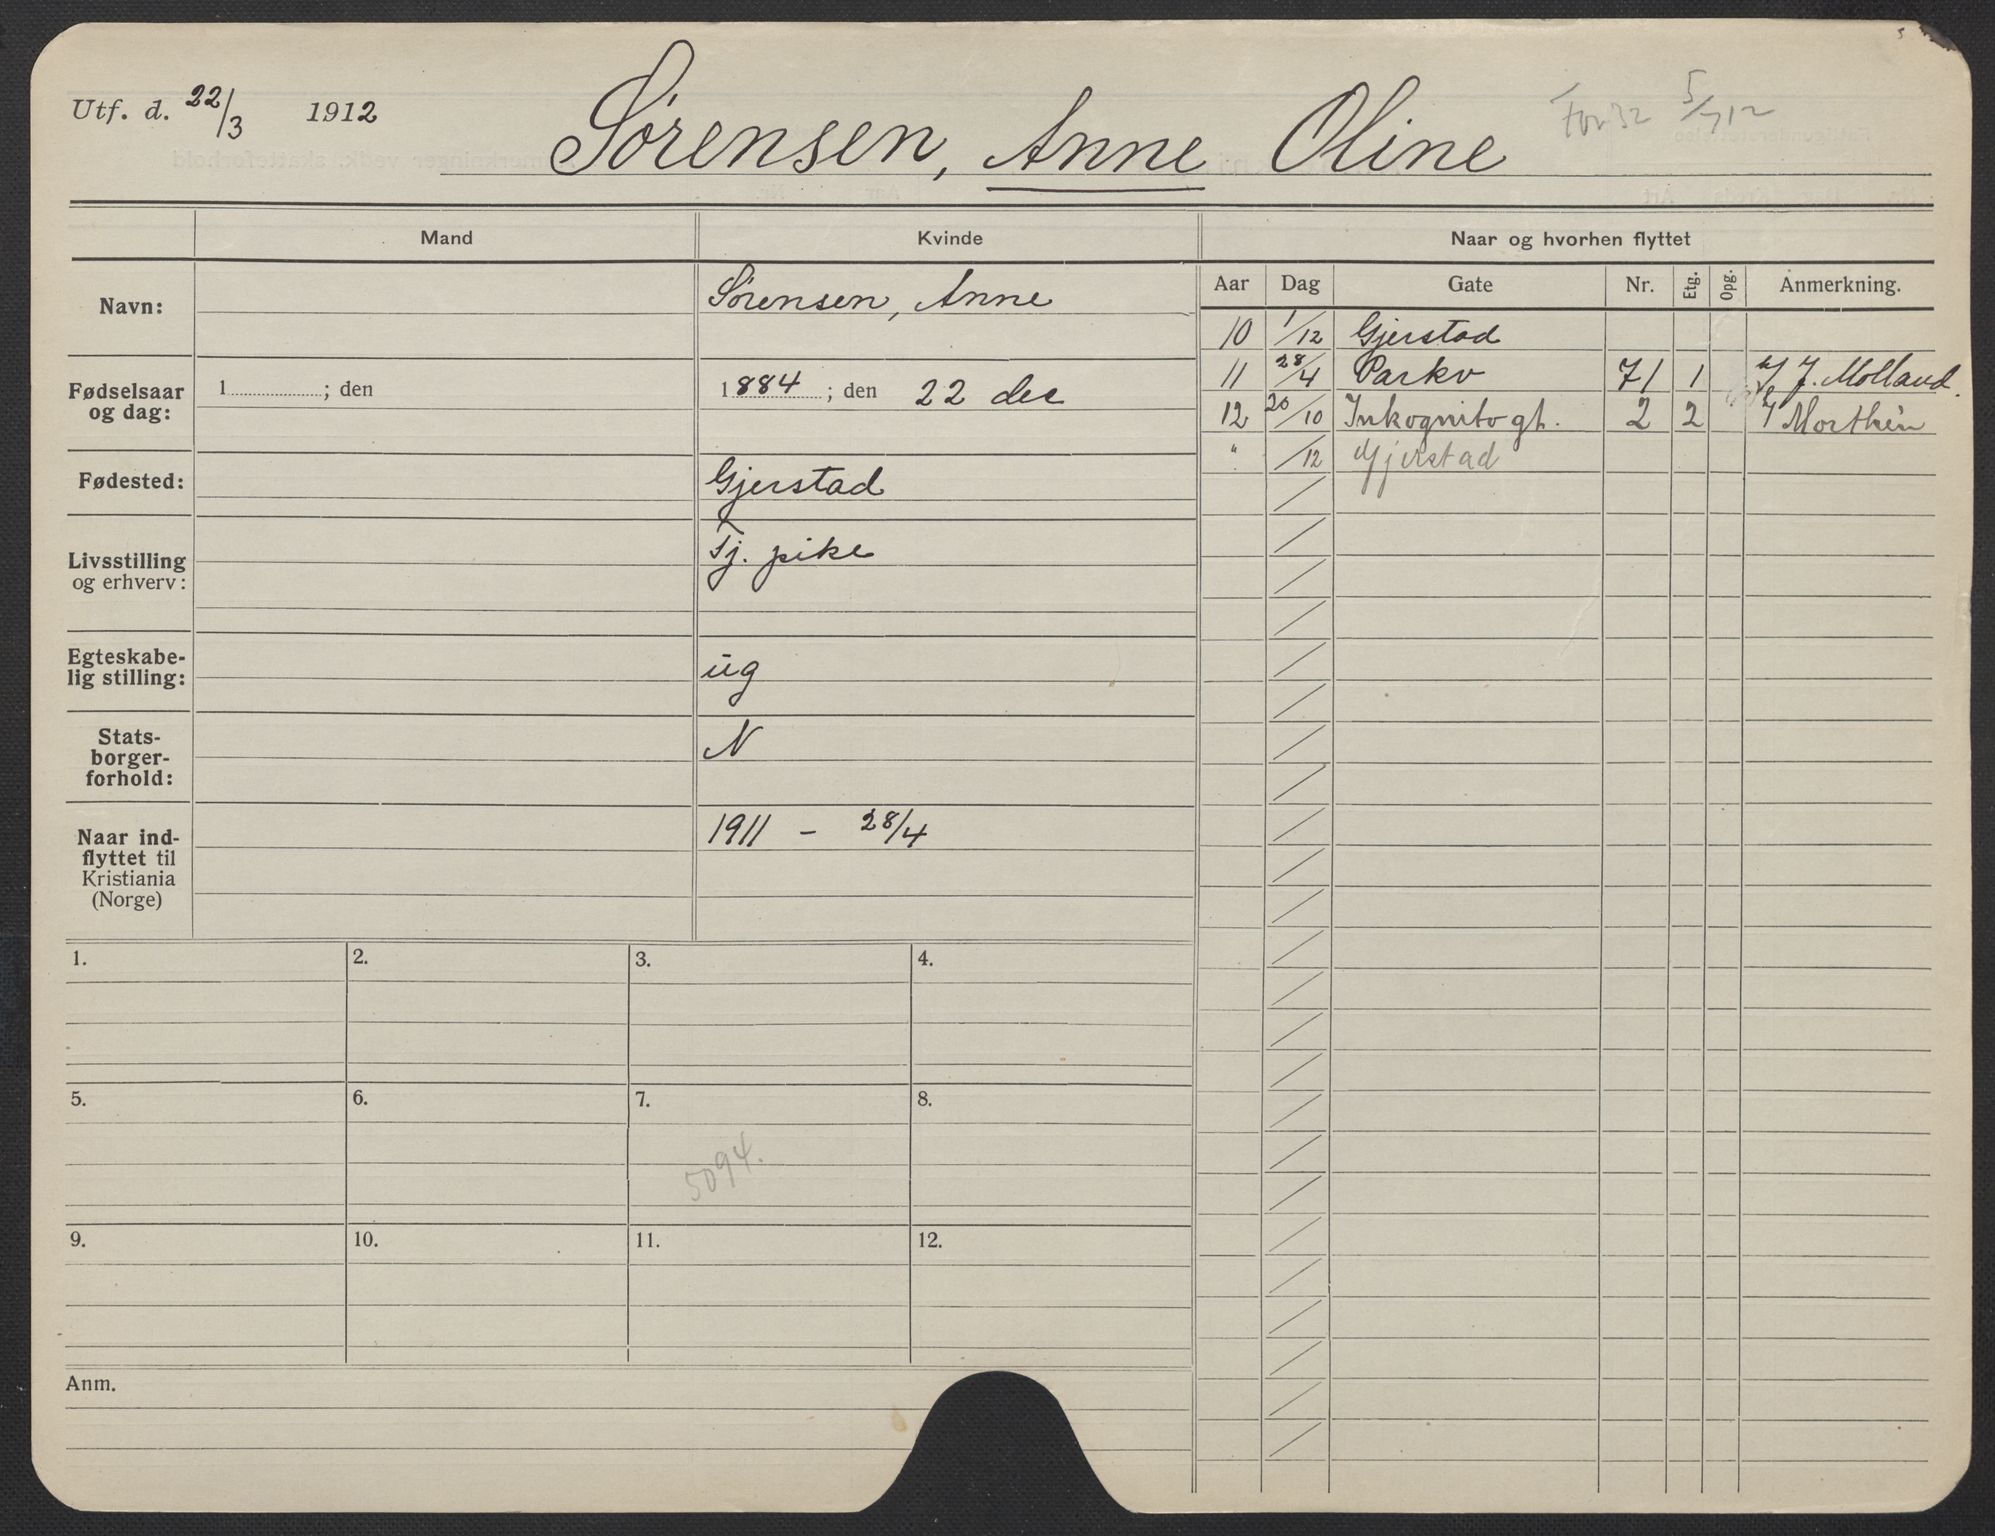 Utf. d. 22/3 1912
Sørensen, Anne Oline
5/7 12
Mand
Kvinde
Naar og hvorhen flyttet
Aar Dag Gate Nr. Etg. Opg. Anmerkning.
Navn: Sørensen, Anne
Fødselsaar og dag: 1 ; den 1884 ; den 22 des
Fødested: Gjerstad
Livsstilling og erhverv: Tj. pike
Egteskabe-
lig stilling: ug
Stats-
borger-
forhold: N
Naar ind-
flyttet til
Kristiania
(Norge) 1911 - 28/4
10 1/12 Gjerstad
11 28/4 Parkv 71 1 J. Molland
12 20/10 Inkognito gt. 2 2 Morthén
" /12 Gjerstad
1. 2. 3. 4.
5. 6. 7. 8.
5094.
9. 10. 11. 12.
Anm.